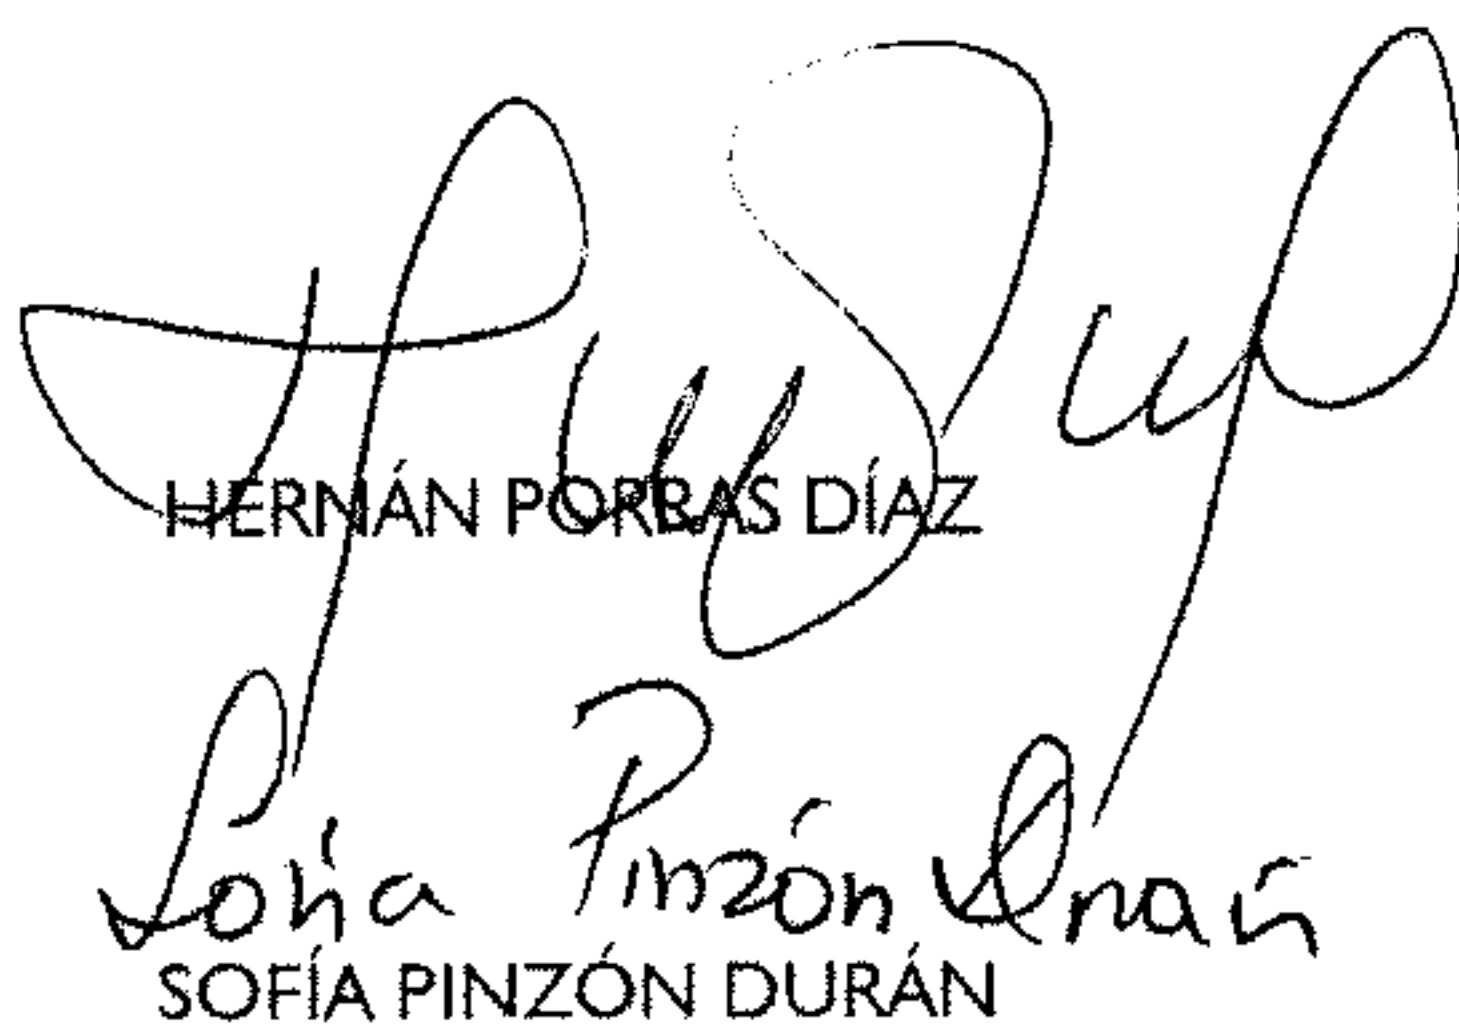 HERNÁN PORRAS DÍAZ
Sofía Pinzón Durán
SOFÍA PINZÓN DURÁN